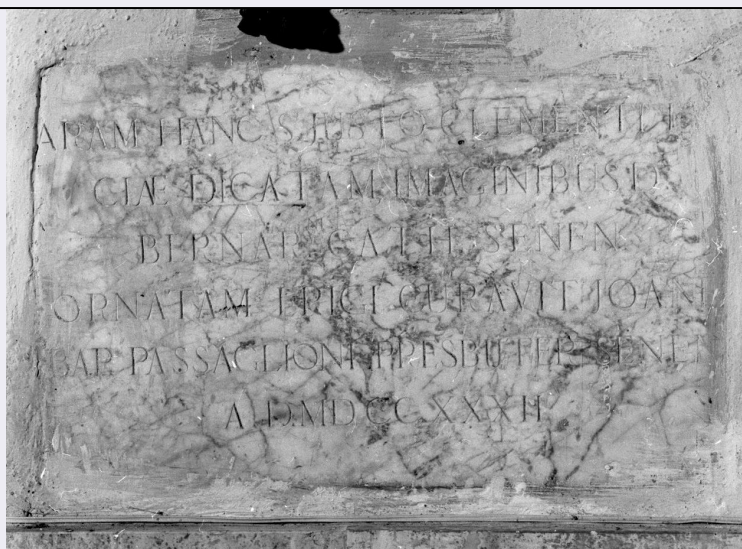 ARAM HANC S. JUSTO CLEMENTI
CIÆ DICATAM IMAGINIBUS D.
BERNAR. CATH. SENEN
ORNATAM ERIGI CURAVIT JOAN
BAP. PASSAGLIONI PRESBITER SENEN
A. D. MDCCXXXII